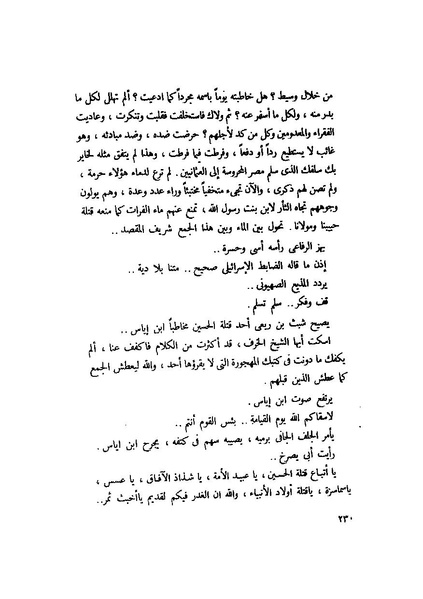 من خلال وسيط ؟ هل خاطبته يوماً باسمه مجرداً كما ادعيت ؟ ألم تهلل لكل ما
بدر منه ، ولكل ما أسفر عنه ؟ ثم ولاك فاستخلفت فقلبت وتنكرت ، وعاديت
الفقراء والمعدومين وكل من كد لأجلهم ؟ حرضت ضده ، وضد مبادئه ، وهو
غائب لا يستطيع رداً أو دفعاً ، وفرطت فيما فرطت ، وهذا لم يتفق مثله لخاير
بك سلفك الذى سلم مصر المحروسة إلى العثمانيين . لم ترع لدماء هؤلاء حرمة ،
ولم تصن لهم ذكرى ، والآن تجىء متخفياً مختبئاً وراء عدد وعدة ، وهم يولون
وجوههم تجاه الثأر لابن بنت رسول الله ، تمنع عنهم ماء الفرات كما منعه قتلة
حبيبنا ومولانا . تحول بين الماء وبين هذا الجمع شريف المقصد ..
يهز الرفاعى رأسه أسى وحسرة ..
إذن ما قاله الضابط الإسرائيلى صحيح .. متنا بلا دية ..
يردد المذيع الصهيونى ..
قف وفكر .. سلم تسلم .
يصيح شبث بن ربعى أحد قتلة الحسين مخاطباً ابن إياس ..
اسكت أيها الشيخ الخرف ، قد أكثرت من الكلام فاكفف عنا ، ألم
يكفك ما دونت فى كتبك المهجورة التى لا يقرؤها أحد ، والله ليعطش الجمع
كما عطش الذين قبلهم .
يرتفع صوت ابن إياس .
لاسقاكم الله يوم القيامة .. بئس القوم أنتم ..
يأمر الجلف الجافى برميه ، يصيبه سهم فى كتفه ، يجرح ابن اياس .
رأيت أبى يصرخ ..
يا أتباع قتلة الحسين ، يا عبيد الأمة ، يا شذاذ الآفاق ، يا عسس ،
ياسماسرة ، ياقتلة أولاد الأنبياء ، والله ان الغدر فيكم لقديم ياأخبث ثمر ..
٢٣٠